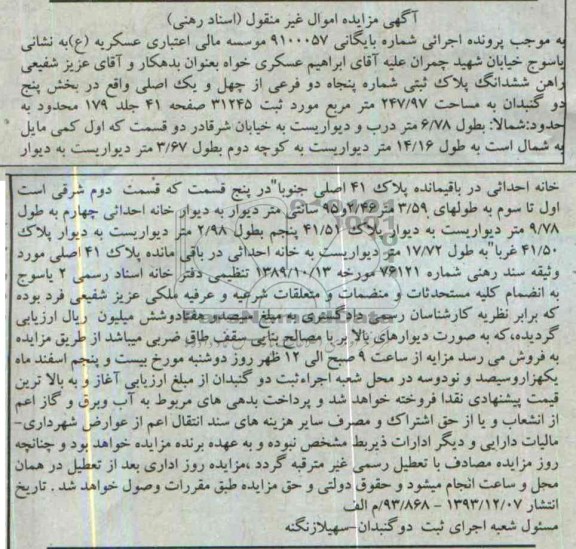 آگهی مزایده اموال غیر منقول (اسناد رهنی)
به موجب پرونده اجرائی شماره بایگانی ۹۱۰۰۰۵۷ موسسه مالی اعتباری عسکریه (ع)به نشانی
یاسوج خیابان شهید چمران علیه آقای ابراهیم عسکری خواه بعنوان بدهکار و آقای عزیز شفیعی
راهن ششدانگ پلاک ثبتی شماره پنجاه دو فرعی از چهل و یک اصلی واقع در بخش پنج
دو گنبدان به مساحت ۲۴۷/۹۷ متر مربع مورد ثبت ۳۱۲۴۵ صفحه ۴۱ جلد ۱۷۹ محدود به
حدود:شمالا: بطول ۶/۷۸ متر درب و دیواریست به خیابان شرقادر دو قسمت که اول کمی مایل
به شمال است به طول ۱۴/۱۶ متر دیواریست به کوچه دوم بطول ۳/۶۷ متر دیواریست به دیوار
خانه احداثی در باقیمانده پلاک ۴۱ اصلی جنوبا"در پنج قسمت که قسمت دوم شرقی است
اول تا سوم به طولهای ۳/۵۹ متر۲/۴۶و۹۵ سانتی متر دیوار به دیوار خانه احداثی چهارم به طول
۹/۷۸ متر دیواریست به دیوار پلاک ۴۱/۵۱ پنجم بطول ۲/۹۸ متر دیواریست به دیوار پلاک
۴۱/۵۰ غربا"به طول ۱۷/۷۲ متر دیواریست به خانه احداثی در باقی مانده پلاک ۴۱ اصلی مورد
وثیقه سند رهنی شماره ۷۶۱۲۱ مورخه ۱۳۸۹/۱۰/۱۳ تنظیمی دفتر خانه اسناد رسمی ۲ یاسوج
به انضمام کلیه مستحدثات و منضمات و متعلقات شرعیه و عرفیه ملکی عزیز شفیعی فرد بوده
که برابر نظریه کارشناسان رسمی دادگستری به مبلغ هفتادوشش میلیون ریال ارزیابی
گردیده،که به صورت دیوارهای بالا بر با مصالح بنایی سقف طاق ضربی میباشد از طریق مزایده
به فروش می رسد مزایه از ساعت ۹ صبح الی ۱۲ ظهر روز دوشنبه مورخ بیست و پنجم اسفند ماه
یکهزاروسیصد و نودوسه در محل شعبه اجراءثبت دو گنبدان از مبلغ ارزیابی آغاز و به بالا ترین
قیمت پیشنهادی نقدا فروخته خواهد شد و پرداخت بدهی های مربوط به آب وبرق و گاز اعم
از انشعاب و یا از حق اشتراک و مصرف سایر هزینه های سند انتقال اعم از عوارض شهرداری-
مالیات دارایی و دیگر ادارات ذیربط مشخص نبوده و به عهده برنده مزایده خواهد بود و چنانچه
روز مزایده مصادف با تعطیل رسمی غیر مترقبه گردد ،مزایده روز اداری بعد از تعطیل در همان
محل و ساعت انجام میشود و حقوق دولتی و حق مزایده طبق مقررات وصول خواهد شد . تاریخ
انتشار ۱۳۹۳/۱۲/۰۷ - ۹۳/۸۶۸/م الف
مسئول شعبه اجرای ثبت دوگنبدان-سهیلازنگنه